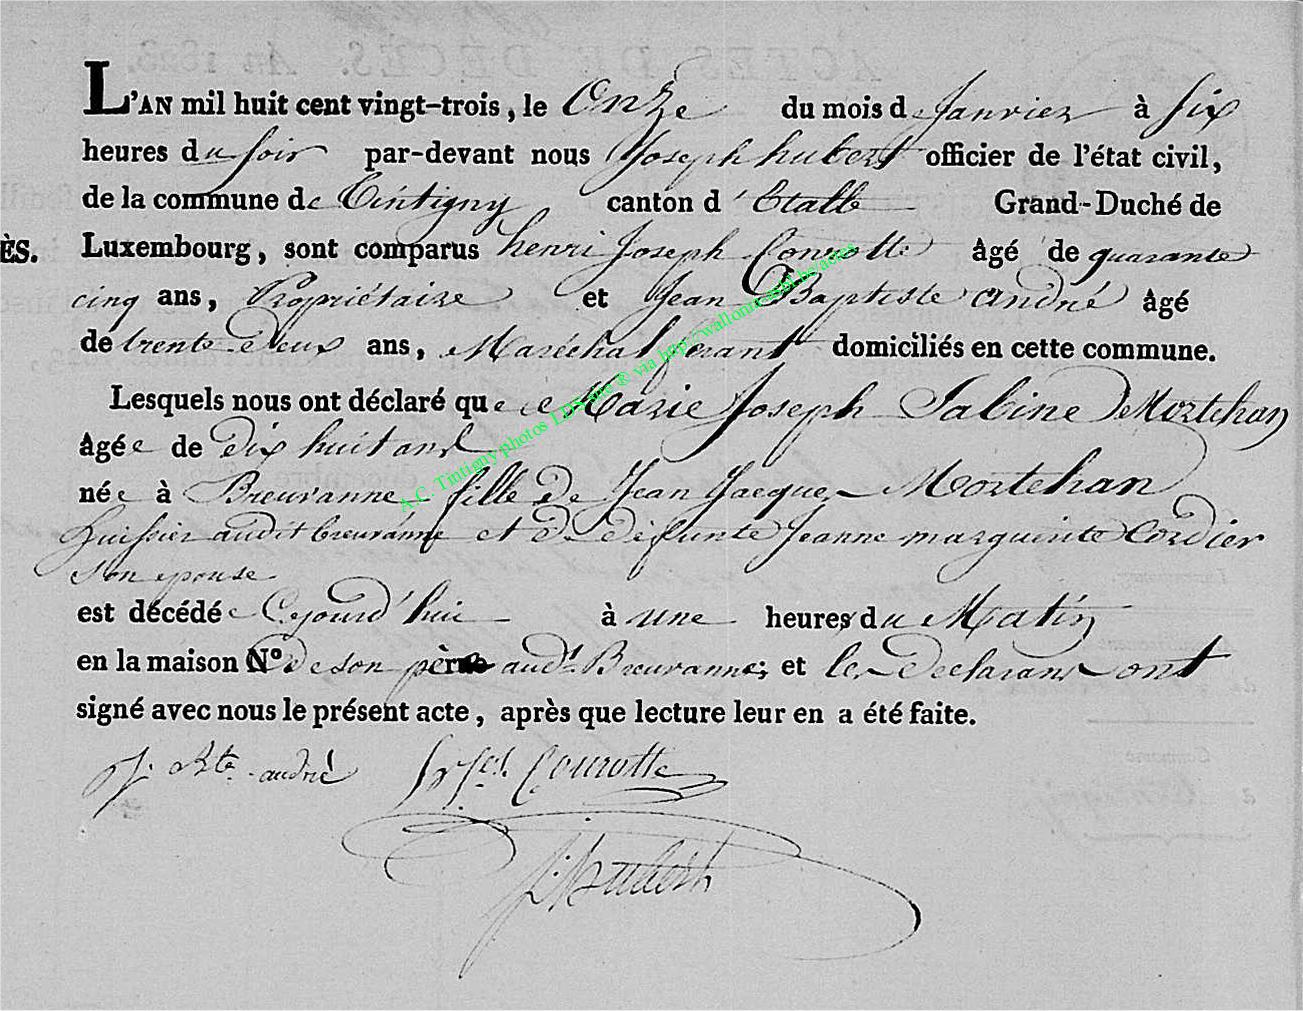 L'AN mil huit cent vingt-trois, le Onze du mois de Janvier à Six
heures du soir par-devant nous Joseph hubert officier de l'état civil,
de la commune de Tintigny canton d'Etalle Grand-Duché de
ÈS. Luxembourg, sont comparus henri Joseph Courotte âgé de quarante
cinq ans, Propriétaire et Jean Baptiste André âgé
de trente deux ans, Maréchal ferant domiciliés en cette commune.
Lesquels nous ont déclaré que Marie Joseph Sabine Demortehan
âgée de Dix huit ans
née à Breuvanne fille de Jean Jacques Mortehan
huissier audit breuvanne et de défunte Jeanne marguerite Cordier
son epouse
est décédée Cejourd'hui à une heures du Matin
en la maison N° de son père audt Breuvanne; et les declarans ont
signé avec nous le présent acte, après que lecture leur en a été faite.
J. Bte andré Courotte
J. Hubert
A.C. Tintigny photos LDS site ® via http://wallonica.be/actes